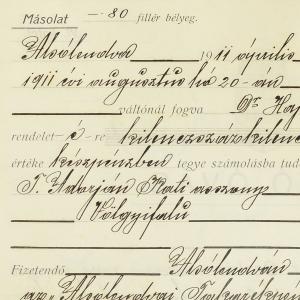 Másolat — 80 fillér bélyeg.
Alsólendva 1911 április
1911 évi augusztus hó 20-án
váltónál fogva Dr Haj
rendelet-é-re kilenczszázkilenc
értéke készpénzben tegye számolásba tud
T. Adorján Kati asszony
Völgyifalu
Fizetendő Alsólendván
az „Alsólendvai Takarékpé